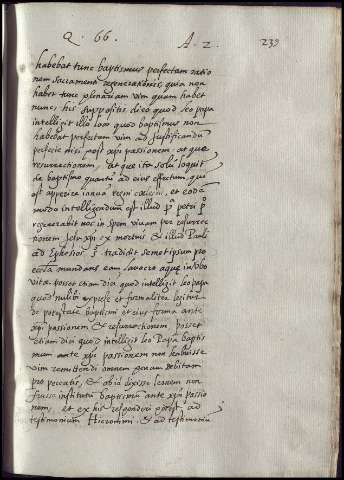 Q. 66. A. 2. 239
habebat tunc baptismus perfectam ratio
nem sacramenti regenerationis, quia non
habet tunc plenariam vim quam habet
nunc, his suppositis dico quod leo papa
intelligit illo loco quod baptismus non
habebat perfectam vim ad justificandum
perfecte nisi post xpi passionem atque
resurrectionem, atque ita solum loquit
de baptismo quantum ad eius effectum qui
est apperire ianuam regni caelorum, et eodem
modo intelligendum est illud pᵃ petri pᵒ
regeneravit nos in spem vivam per resurre
ctionem Jesu xpi ex mortuis & illud Pauli
ad Ephesios tradidit semetipsum pro
ecclā mundans eam lavacro aquae in vbo
vitae. posset etiam dici quod intelligit leo papa
quod nullibi expresse et formaliter legitur
de potestate baptismi et eius forma ante
xpi passionem & resurrectionem. posset
etiam dici quod intelligit leo Papa baptis
mum ante xpi passionem non habuisse
vim remittendi omnem penam debitam
pro peccatis, & alia dixisse leonem non
fuisse institutum baptismum ante xpi passio
nem, et ex his responderi potest ad
testimonium Hieronimi, & ad testimonium